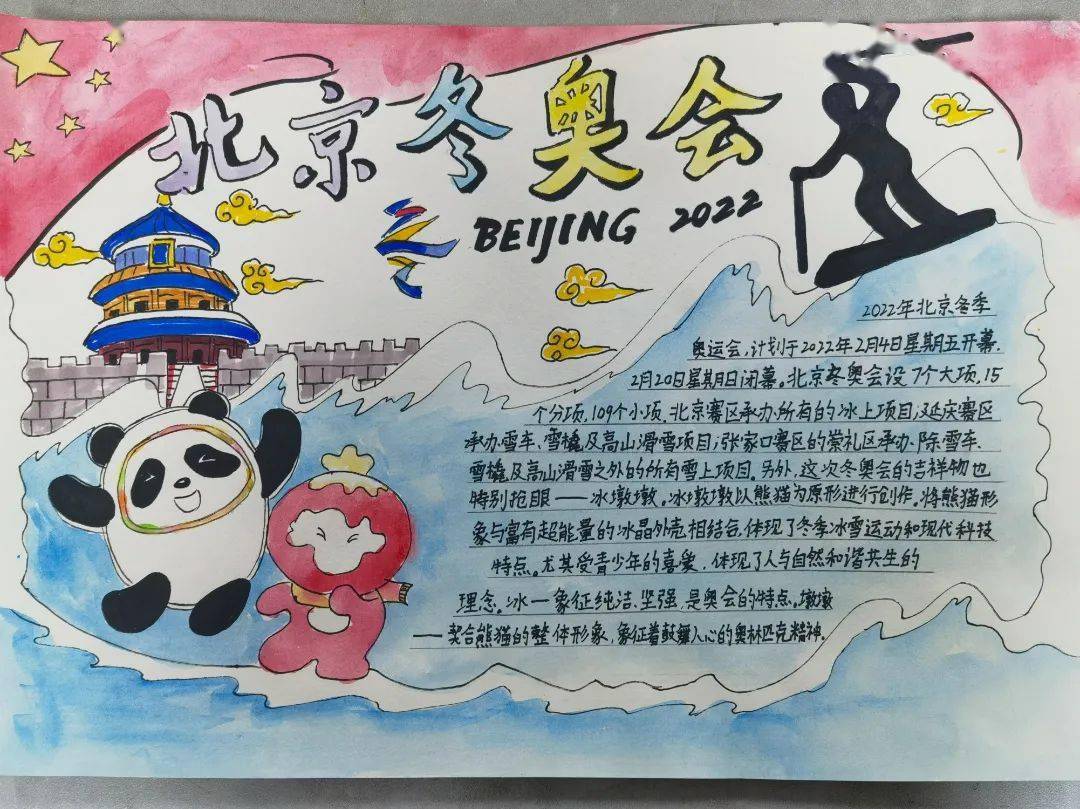 北京冬奥会
BEIJING 2022
2022年北京冬季
奥运会,计划于2022年2月4日星期五开幕.
2月20日星期日闭幕。北京冬奥会设7个大项,15
个分项,109个小项.北京赛区承办所有的冰上项目;延庆赛区
承办雪车、雪橇及高山滑雪项目;张家口赛区的崇礼区承办除雪车、
雪橇及高山滑雪之外的所有雪上项目.另外,这次冬奥会的吉祥物也
特别抢眼——冰墩墩.冰墩墩以熊猫为原形进行创作。将熊猫形
象与富有超能量的冰晶外壳相结合,体现了冬季冰雪运动和现代科技
特点。尤其受青少年的喜爱,体现了人与自然和谐共生的
理念.冰—象征纯洁、坚强,是奥会的特点。墩墩
——契合熊猫的整体形象,象征着鼓舞人心的奥林匹克精神.